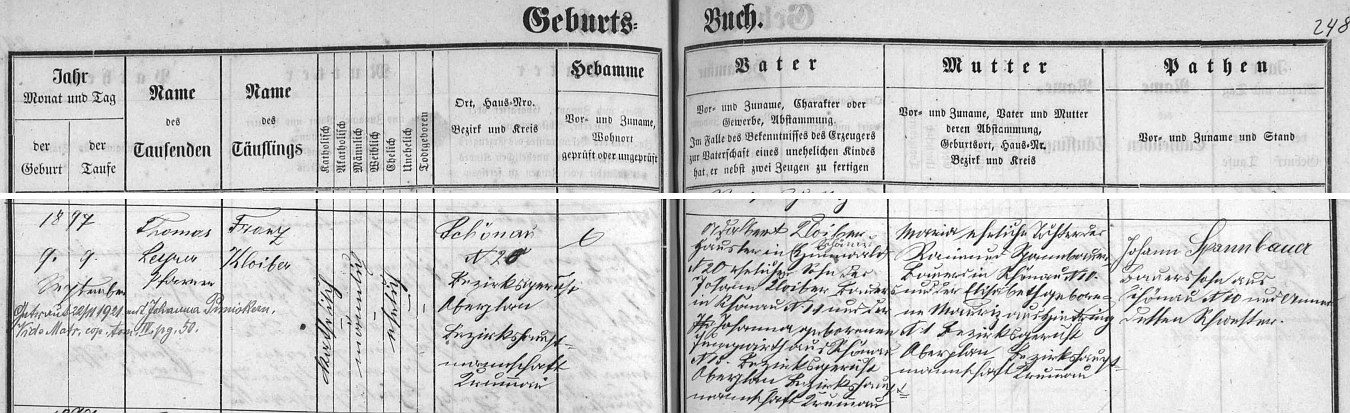 Geburts-
Buch.
248
Jahr
Monat und Tag
der Geburt
der Taufe
Name
des
Taufenden
Name
des
Täuflings
Katholisch
Akatholisch
Männlich
Weiblich
Ehelich
Unehelich
Todtgeboren
Ort, Haus-Nro.
Bezirk und Kreis
Hebamme
Vor- und Zuname,
Wohnort
geprüft oder ungeprüft
Vater
Vor- und Zuname, Charakter oder
Gewerbe, Abstammung.
Im Falle des Bekenntnisses des Erzeugers
zur Vaterschaft eines unehelichen Kindes
hat, er nebst zwei Zeugen zu fertigen
Mutter
Vor- und Zuname, Vater und Mutter
deren Abstammung,
Geburtsort, Haus-Nr.
Bezirk und Kreis
Pathen
Vor- und Zuname und Stand
1897
9. 9.
September
Getraut 1921 mit Johanna
Vide Matr. cop. Tom IV. pg. 50.
Thomas
Pfarrer
Franz
Kloiber
katholisch
männlich
ehelich
Schönau
N 20
Bezirksgericht
Oberplan
Bezirkshaupt-
mannschaft
Krumau
Kloiber
Häusler in
N 20 ehelicher Sohn des
Johann Kloiber Bauers
in Schönau und der
Johanna geborenen
aus Schönau
Bezirksgericht
Oberplan Bezirkshaupt-
mannschaft Krumau
Maria eheliche Tochter des
Spannbauer
Bauers in Schönau N 10.
und der Elisabeth gebore-
ne aus
N 1 Bezirksgericht
Oberplan Bezirkshaupt-
mannschaft Krumau
Johann Spannbauer
Bauerssohn aus
Schönau N 10 und
dessen Schwester.